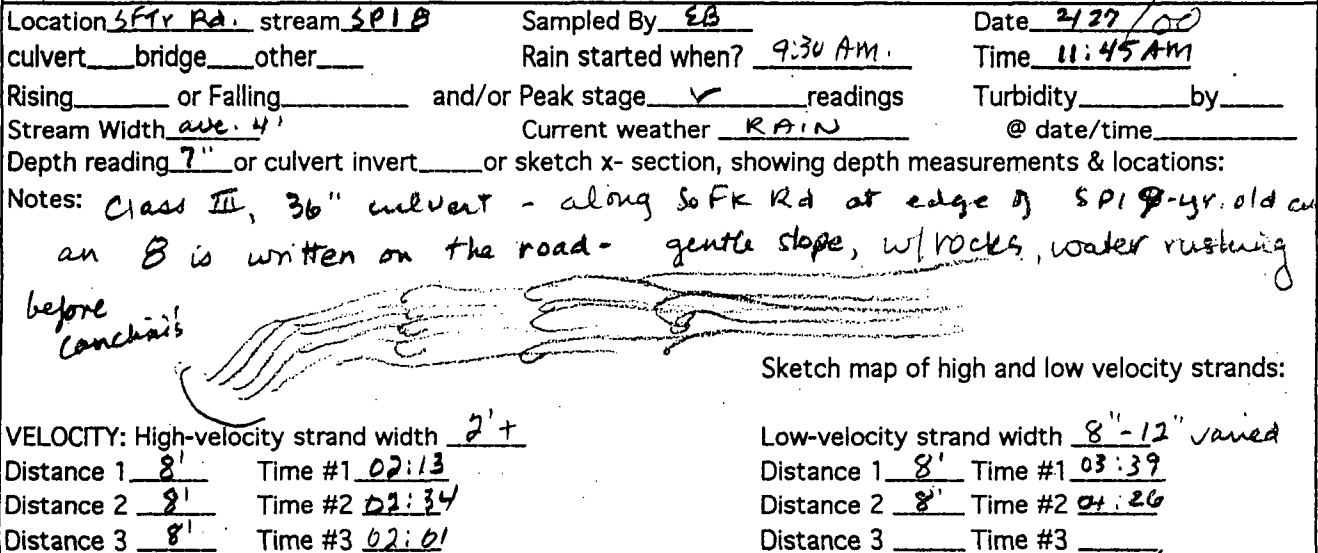 Location SFTr Rd. stream SPI 8 Sampled By EB Date 2/27/00
culvert___bridge___other___ Rain started when? 9:30 AM. Time 11:45 AM
Rising___ or Falling___ and/or Peak stage ✓ readings Turbidity___by___
Stream Width ave. 4' Current weather RAIN @ date/time___
Depth reading 7" or culvert invert___or sketch x- section, showing depth measurements & locations:
Notes: Class III, 36" culvert - along So Fk Rd at edge of SPI -yr. old
an 8 is written on the road - gentle slope, w/rocks, water rushing
before
Sketch map of high and low velocity strands:
VELOCITY: High-velocity strand width 2'+ Low-velocity strand width 8"-12" varied
Distance 1 8' Time #1 02:13 Distance 1 8' Time #1 03:39
Distance 2 8' Time #2 02:34 Distance 2 8' Time #2 04:26
Distance 3 8' Time #3 02:01 Distance 3 ___ Time #3 ___